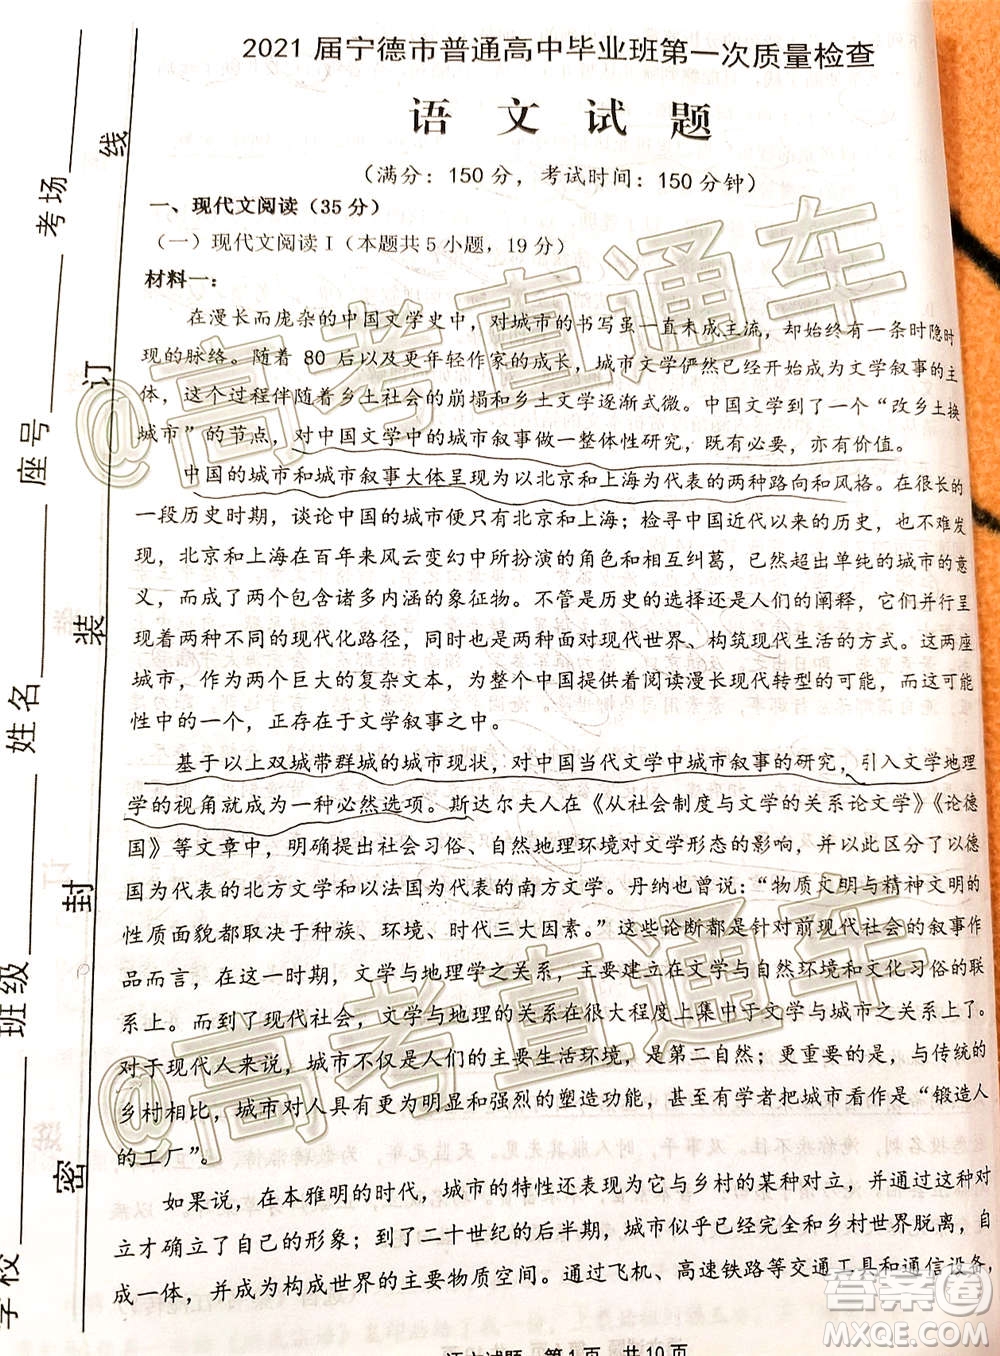 2021届宁德市普通高中毕业班第一次质量检查
语 文 试 题
（满分：150分，考试时间：150分钟）
一、现代文阅读（35分）
（一）现代文阅读Ⅰ（本题共5小题，19分）
材料一：
在漫长而庞杂的中国文学史中，对城市的书写虽一直未成主流，却始终有一条时隐时
现的脉络。随着 80 后以及更年轻作家的成长，城市文学俨然已经成为文学叙事的主
体，这一过程伴随着乡土社会的崩塌和乡土文学逐渐式微。中国文学到了一个“改乡土换
城市”的节点，对中国文学中的城市叙事做一整体性研究，既有必要，亦有价值。
中国的城市和城市叙事大体呈现为以北京和上海为代表的两种路向和风格。在很长的
一段历史时期，谈论中国的城市便只有北京和上海；检寻中国近代以来的历史，也不难发
现，北京和上海在百年来风云变幻中所扮演的角色和相互纠葛，已然超出单纯的城市的意
义，而成了两个包含诸多内涵的象征物。不管是历史的选择还是人们的阐释，它们并行呈
现着两种不同的现代化路径，同时也是两种面对现代世界、构筑现代生活的方式。这两座
城市，成了两个巨大的复杂文本，为整个中国提供着阅读漫长现代转型的可能，而这可能
性中的一个，正存在于文学叙事之中。
基于以上双城带群城的城市现状，对中国当代文学中城市叙事的研究，引入文学地理
学的视角就成为一种必然选项。斯达尔夫人在《从社会制度与文学的关系论文学》《论德
国》等文章中，明确提出社会习俗、自然地理环境对文学形态的影响，并以此区分了以德
国为代表的北方文学和以法国为代表的南方文学。丹纳也曾说：“物质文明与精神文明的
性质面貌都取决于种族、环境、时代三大因素。”这些论断都是针对前现代社会的叙事作
品而言，在这一时期，文学与地理学之关系，主要是建立在文学与自然环境和文化习俗的联
系上。而到了现代社会，文学与地理的关系在很大程度上集中于文学与城市的关系上了。
对于现代人来说，城市不仅是人们的主要生活环境，是第二自然；更重要的是，与传统的
乡村相比，城市对人具有更为明显和强烈的塑造功能，甚至有学者把城市看作是“锻造人
的工厂”。
如果说，在本雅明的时代，城市的特性还表现为它与乡村的某种对立，并且在这种对
立中才确立了自己的形象；到了二十世纪的后半期，城市似乎已经完全和乡村世界脱离，自
成一体，并且成为构成世界的主要物质空间。通过飞机、高速铁路等交通工具和通信设备，
语文试题 第1页 共10页
学校
班级
姓名
座号
考场
密
封
装
订
线
@高考直通车
@高考直通车
答案圈
MXQE.COM